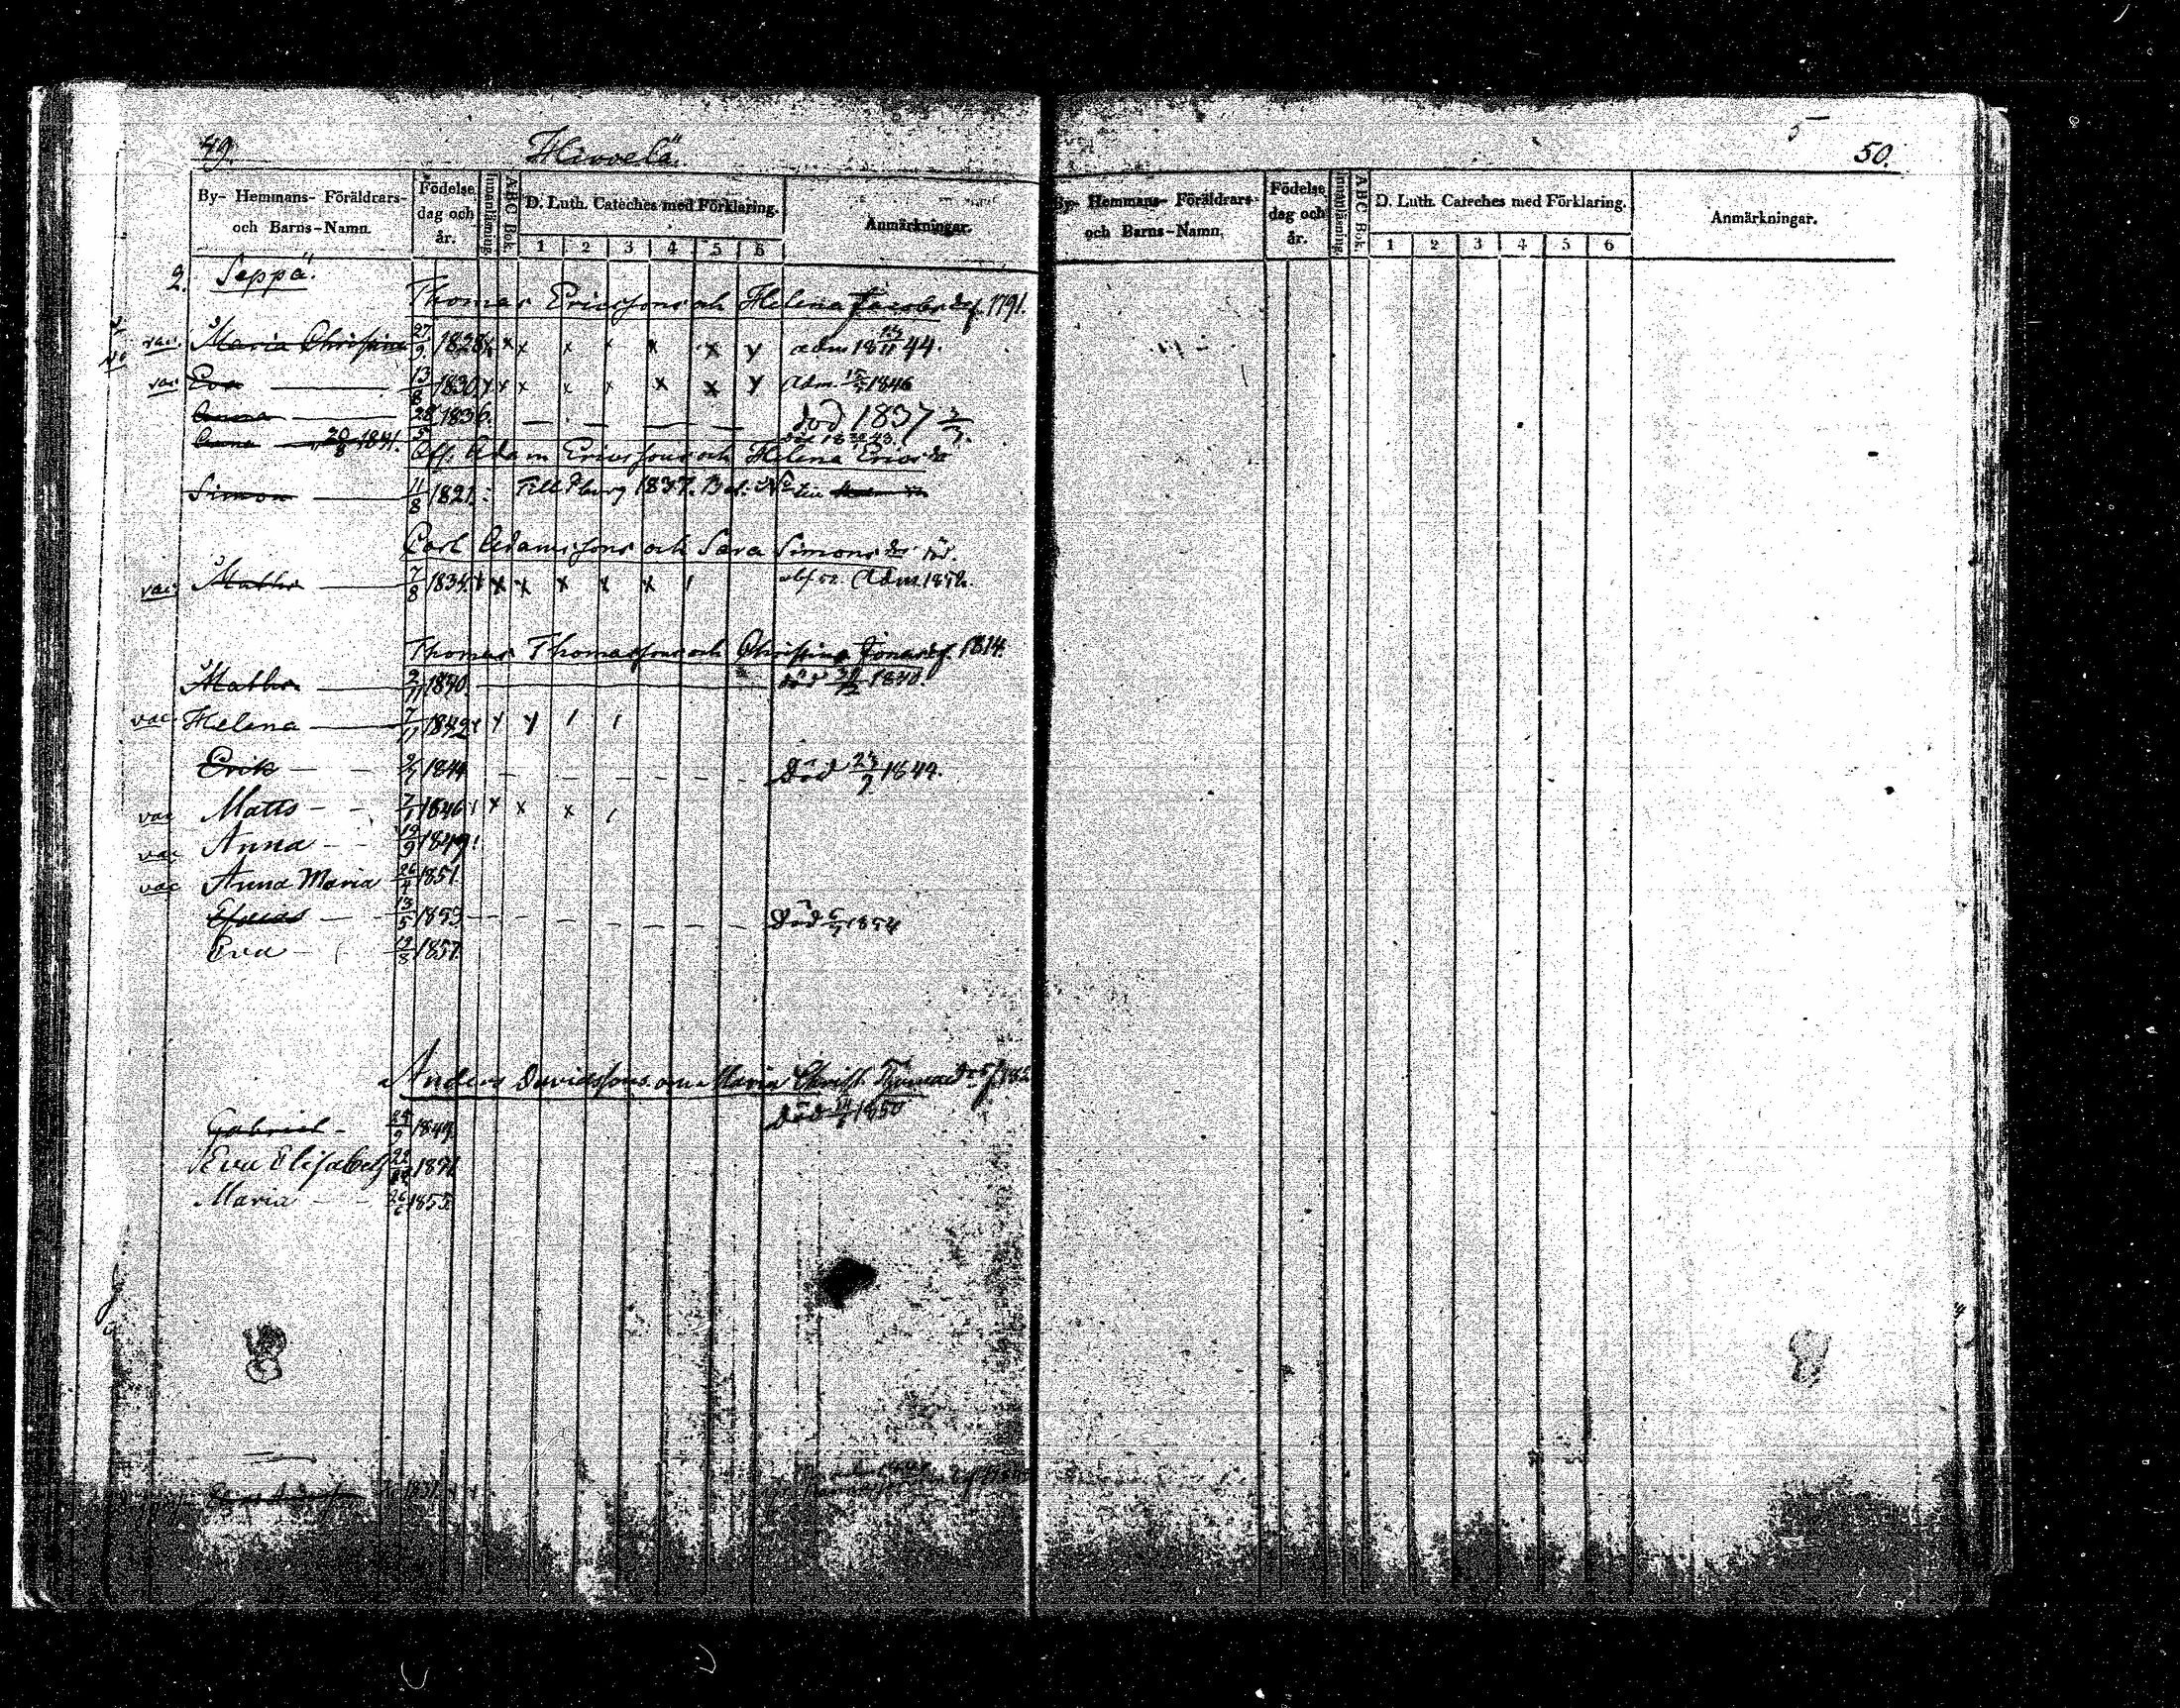 49.
Hirvelä.
By- Hemmans- Föräldrars- och Barns-Namn.
Födelse dag och år.
Innanläsning.
ABC Bok.
D. Luth. Catèches med Förklaring.
1 2 3 4 5 6
Anmärkningar.
2. Seppä.
Thomas Ericssons och Helena Jacobsd. f. 1791.
vac. Maria Christina 27/9 1828 x x x x x x x y adm 18 44.
vac. Eva 13/8 1830 y x x x x x x y adm. 1846
Anna 28/5 1836. död 1837
Anna 20/8 1841. död 1843.
Afl. Adam Ericssons och Helena Ericsdr
Simon 11/8 1821. Till Pburg 1837. Bet. No
Carl Adamssons och Sara Simonsdr
vac. Matts 7/8 1834. x x x x x x / Adm. 1852.
Thomas Thomassons och Christina Jonasd. f. 1814.
Matts 2/11 1840. död 1840.
vac. Helena 7/11 1842 x y y / /
Erik 2/7 1844 Död 1844.
vac Matts 7/1 1846 / x x x /
vac Anna 19/9 1849 /
vac Anna Maria 26/4 1851
13/5 1853 Död 1854
Eva 19/8 1857
Anders Davidssons Maria Christ. Thomasdr f. 182
Gabriel 24/9 1849. Död 1850
Eva Elisabeth 22
Maria 26/6 1855
1831
5
50.
By- Hemmans- Föräldrars- och Barns-Namn.
Födelse dag och år.
Innanläsning.
ABC Bok.
D. Luth. Catèches med Förklaring.
1 2 3 4 5 6
Anmärkningar.